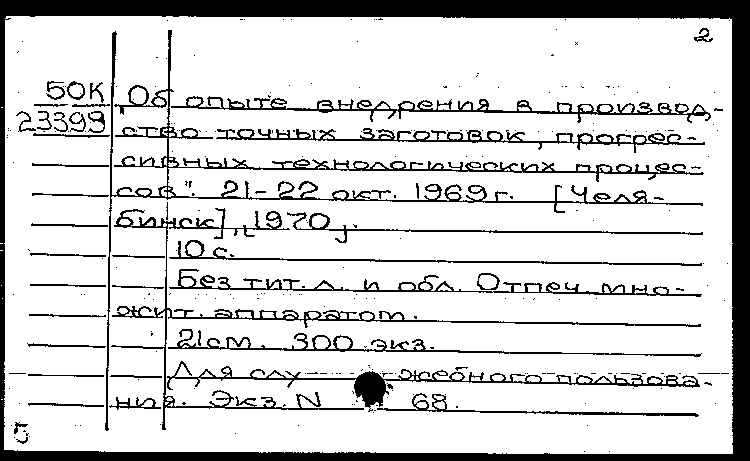 2
50К "Об опыте внедрения в производ-
23399 ство точных заготовок, прогрес-
сивных технологических процес-
сов". 21-22 окт. 1969 г. [Челя-
бинск], [1970].
10 с.
Без тит. л. и обл. Отпеч. мно-
жит. аппаратом.
21см. 300 экз.
Для служебного пользова-
ния. Экз. N 68.
5